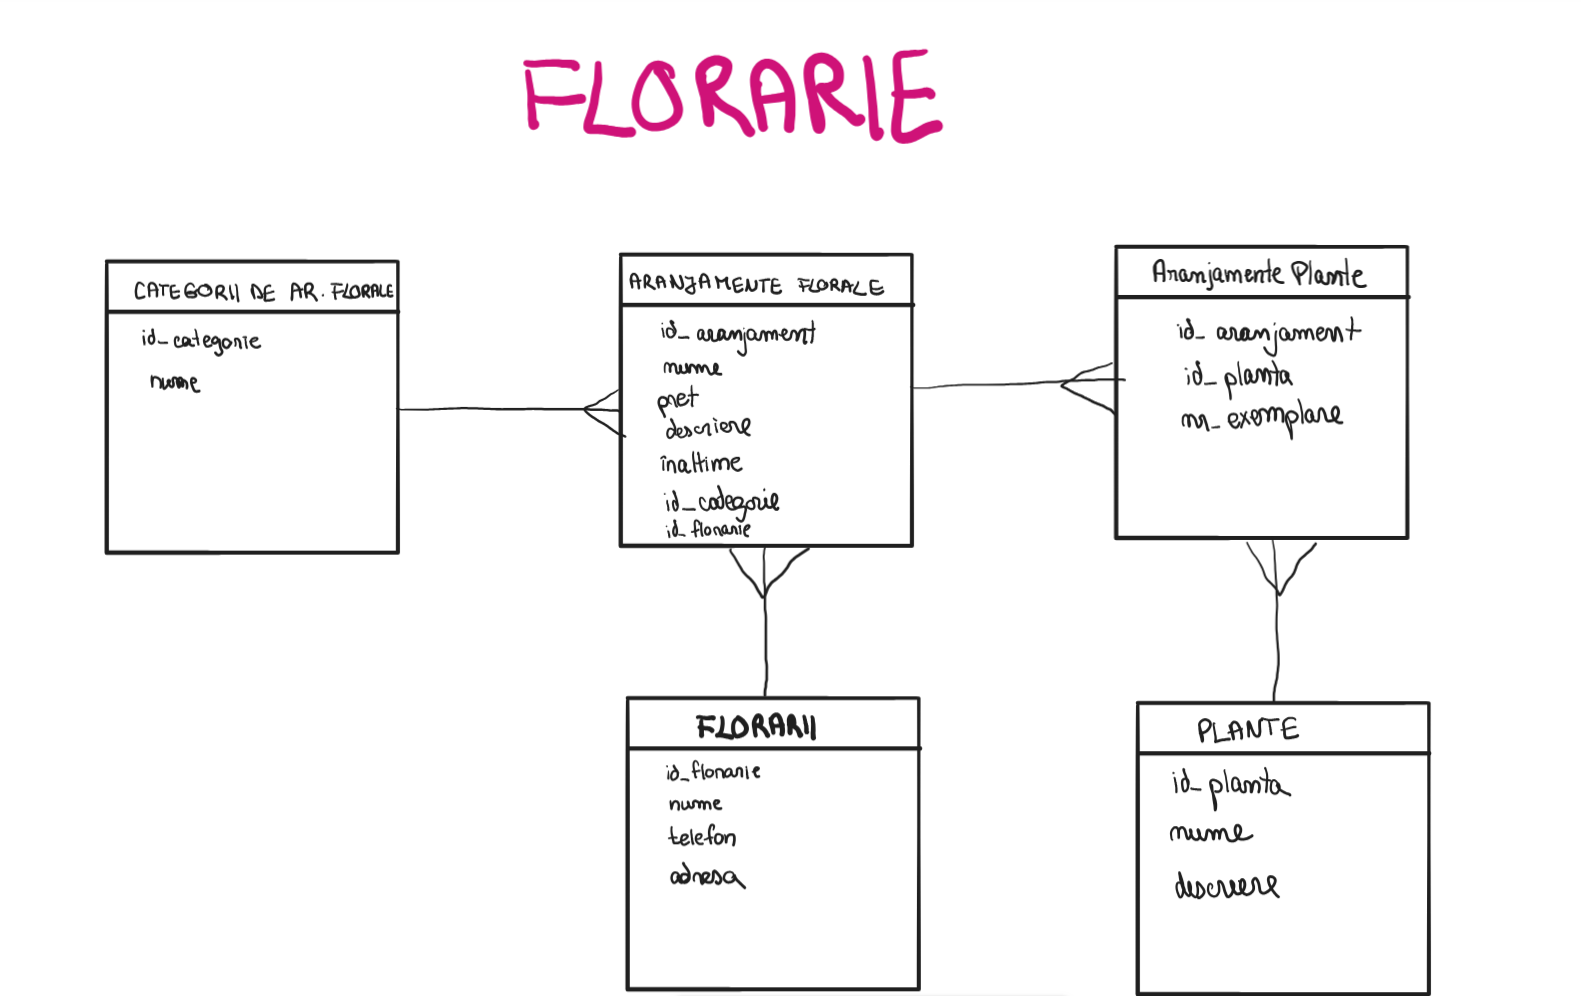 FLORARIE
CATEGORII DE AR. FLORALE
id_categorie
nume
ARANJAMENTE FLORALE
id_aranjament
nume
pret
descriere
înaltime
id_categorie
id_florarie
Aranjamente Plante
id_aranjament
id_planta
nr_exemplare
FLORARII
id_florarie
nume
telefon
adresa
PLANTE
id_planta
nume
descriere